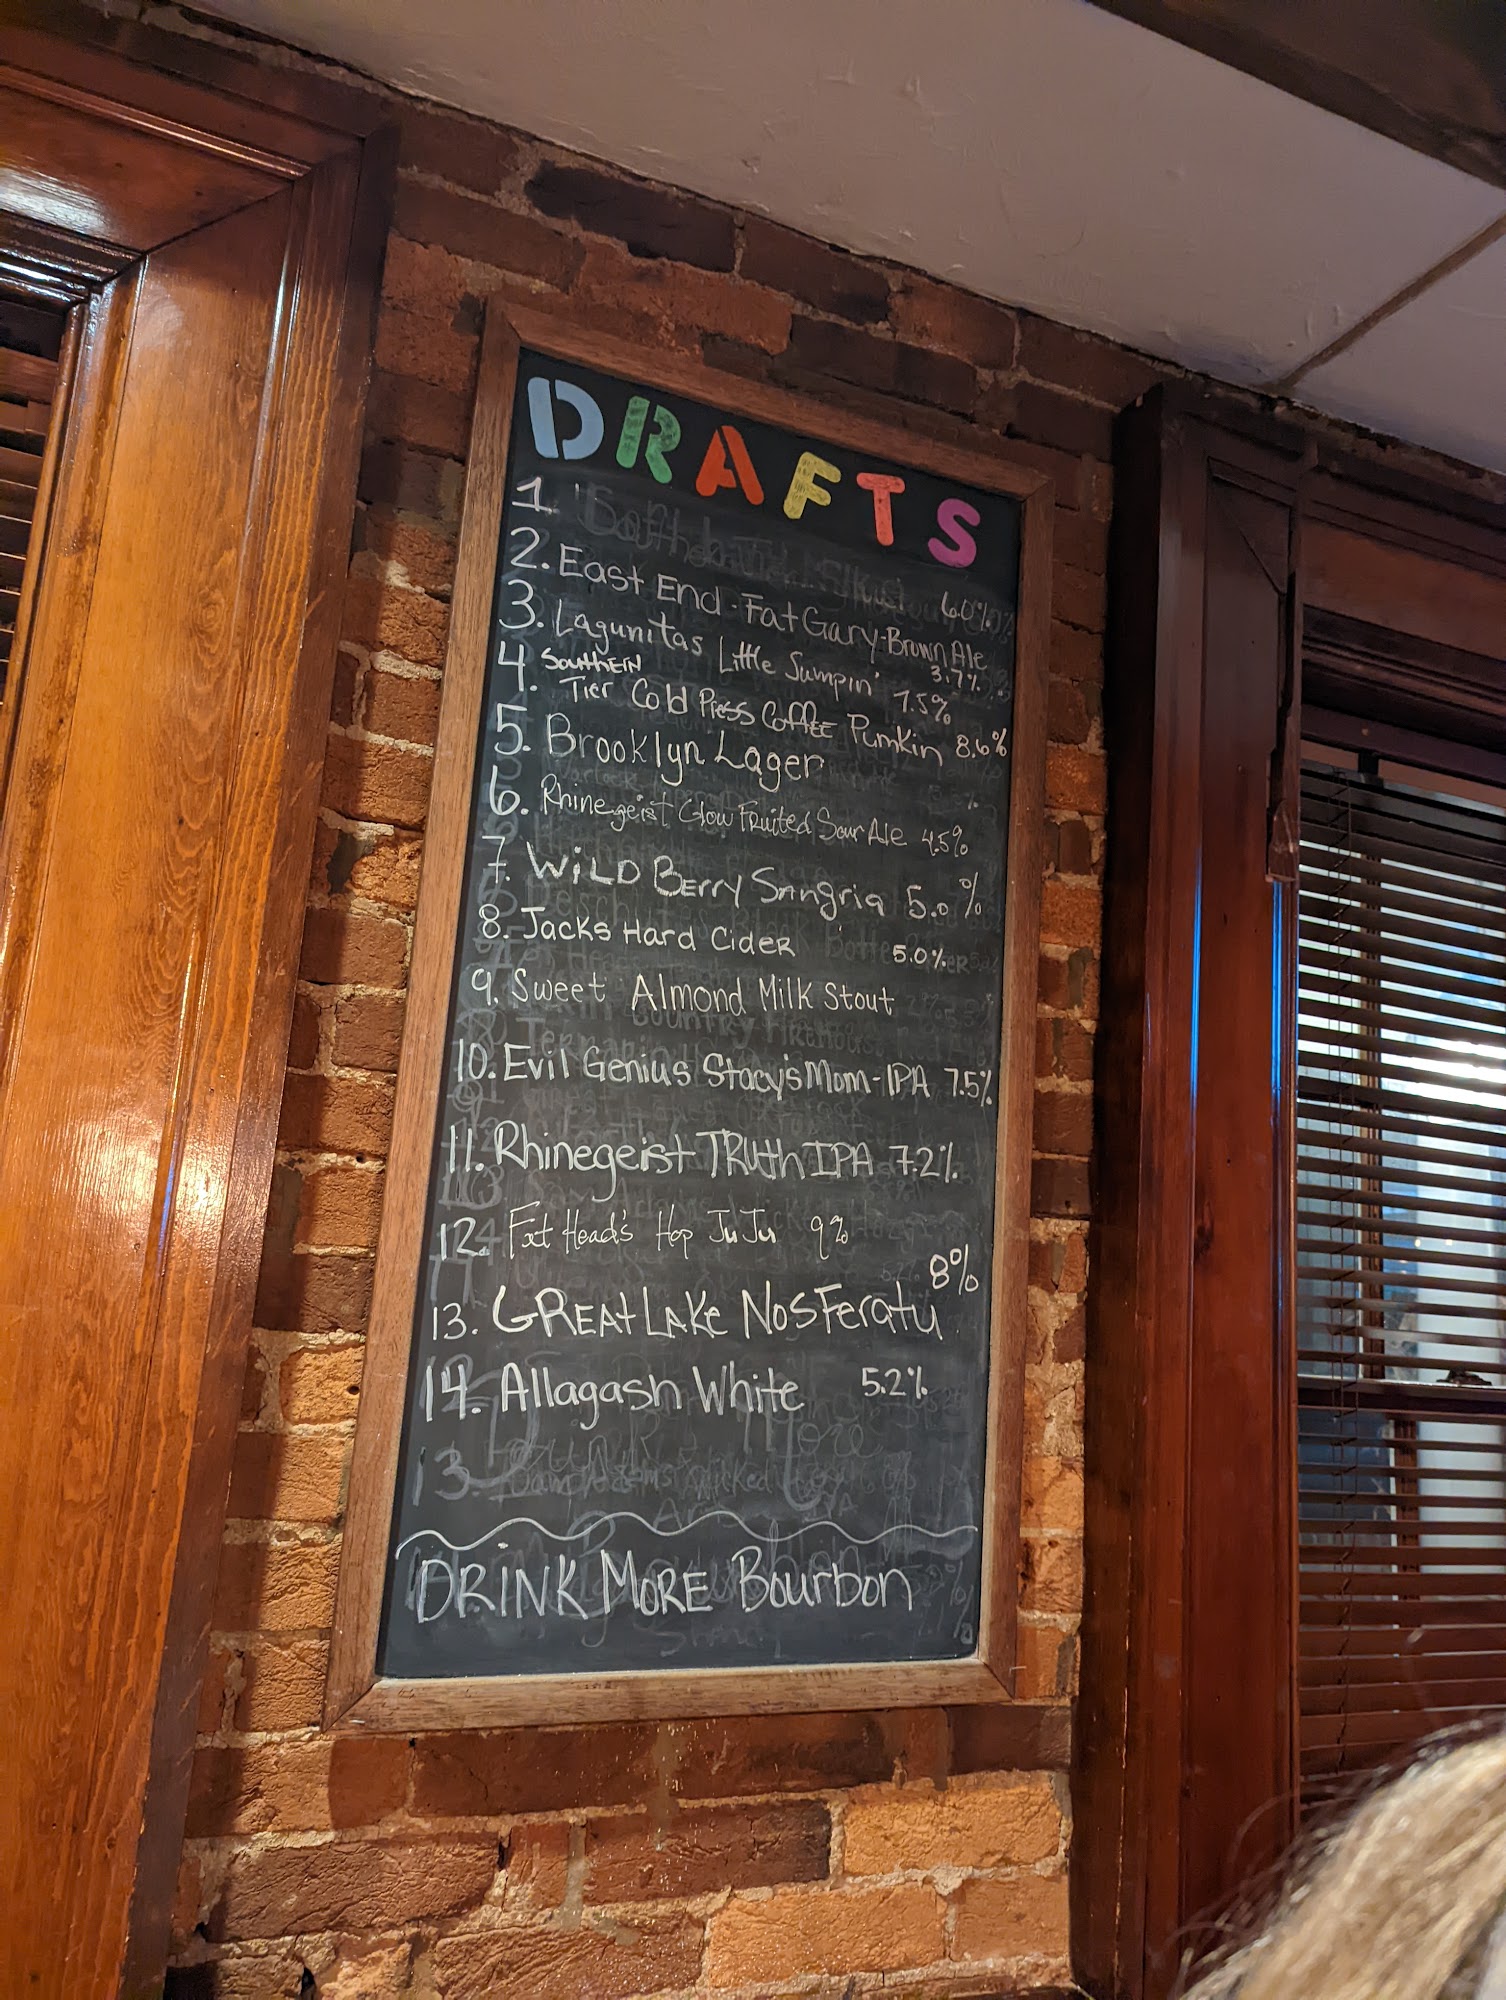 DRAFTS
1
2. East End - Fat Gary - Brown Ale 6.0%
3.7%
3. Lagunitas Little Sumpin' 7.5%
4. Southern
Tier Cold Press Coffee Pumkin 8.6%
5. Brooklyn Lager
6. Rhinegeist Glow Fruited Sour Ale 4.5%
7. Wild Berry Sangria 5.0%
8. Jacks Hard Cider 5.0%
9. Sweet Almond Milk Stout
10. Evil Genius Stacy's Mom - IPA 7.5%
11. Rhinegeist TRUth IPA 7.2%
12. Fat Head's Hop JuJu 9%
8%
13. GREAt LAKe NosFeratu
14. Allagash White 5.2%
13.
DRINK MORE Bourbon